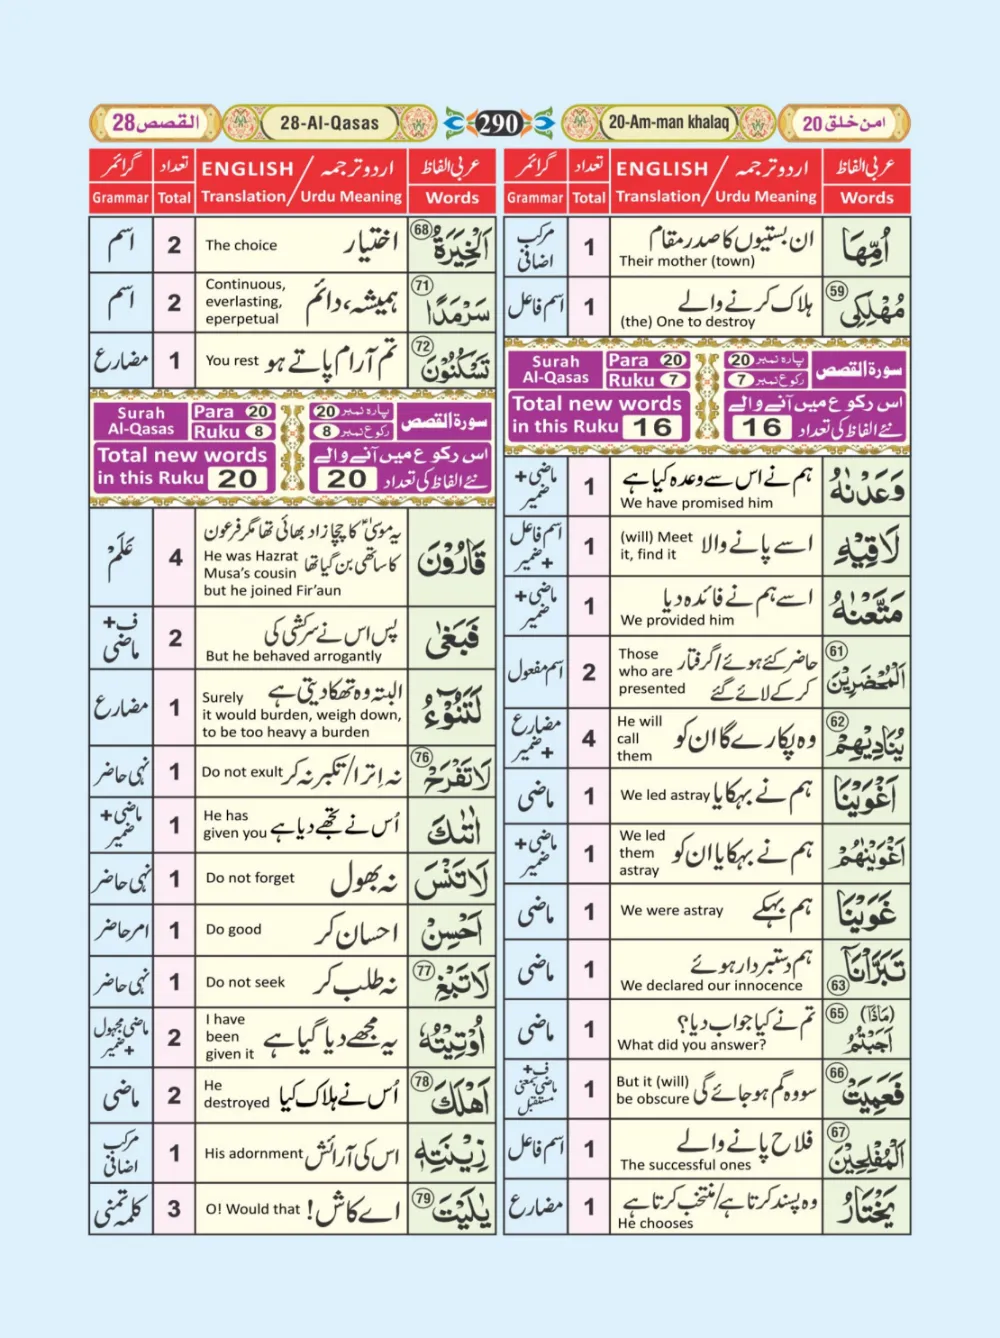 القصص 28
28-Al-Qasas
290
20-Am-man khalaq
امن خلق 20
عربی الفاظ
اردو ترجمہ / ENGLISH
تعداد
گرائمر
Words
Translation / Urdu Meaning
Total
Grammar
اُمِّهَا
ان بستیوں کا صدر مقام
Their mother (town)
1
مرکب اضافی
59
مُهْلِكِی
ہلاک کرنے والے
(the) One to destroy
1
اسم فاعل
سورۃ القصص
پارہ نمبر 20
رکوع نمبر 7
Surah Al-Qasas
Para 20
Ruku 7
اس رکوع میں آنے والے
نئے الفاظ کی تعداد 16
Total new words
in this Ruku 16
وَعَدْنٰهُ
ہم نے اس سے وعدہ کیا ہے
We have promised him
1
ماضی + ضمیر
لَاقِیْهِ
اسے پانے والا
(will) Meet
it, find it
1
اسم فاعل + ضمیر
مَتَّعْنٰهُ
اسے ہم نے فائدہ دیا
We provided him
1
ماضی + ضمیر
61
الْمُحْضَرِیْنَ
حاضر کئے ہوئے/گرفتار
کر کے لائے گئے
Those
who are
presented
2
اسم مفعول
62
یُنَادِیْهِمْ
وہ پکارے گا ان کو
He will
call
them
4
مضارع + ضمیر
اَغْوَیْنَا
ہم نے بہکایا
We led astray
1
ماضی
اَغْوَیْنٰهُمْ
ہم نے بہکایا ان کو
We led
them
astray
1
ماضی + ضمیر
غَوَیْنَا
ہم بہکے
We were astray
1
ماضی
تَبَرَّاْنَا
63
ہم دستبردار ہوئے
We declared our innocence
1
ماضی
65
(مَاذَا)
اَجَبْتُمْ
تم نے کیا جواب دیا؟
What did you answer?
1
ماضی
66
فَعَمِیَتْ
سو وہ گم ہو جائے گی
But it (will)
be obscure
1
ف + ماضی بمعنی مستقبل
67
الْمُفْلِحِیْنَ
فلاح پانے والے
The successful ones
1
اسم فاعل
یَخْتَارُ
وہ پسند کرتا ہے/منتخب کرتا ہے
He chooses
1
مضارع
عربی الفاظ
اردو ترجمہ / ENGLISH
تعداد
گرائمر
Words
Translation / Urdu Meaning
Total
Grammar
68
الْخِیَرَةُ
اختیار
The choice
2
اسم
71
سَرْمَدًا
ہمیشہ، دائم
Continuous,
everlasting,
eperpetual
2
اسم
72
تَسْكُنُوْنَ
تم آرام پاتے ہو
You rest
1
مضارع
سورۃ القصص
پارہ نمبر 20
رکوع نمبر 8
Surah Al-Qasas
Para 20
Ruku 8
اس رکوع میں آنے والے
نئے الفاظ کی تعداد 20
Total new words
in this Ruku 20
قَارُوْنَ
یہ موسیٰؑ کا چچا زاد بھائی تھا مگر فرعون
کا ساتھی بن گیا تھا
He was Hazrat
Musa's cousin
but he joined Fir'aun
4
عَلَمْ
فَبَغٰی
پس اس نے سرکشی کی
But he behaved arrogantly
2
ف + ماضی
لَتَنُوْٓءُ
البتہ وہ تھکا دیتی ہے
Surely
it would burden, weigh down,
to be too heavy a burden
1
مضارع
76
لَا تَفْرَحْ
نہ اِترا/تکبر نہ کر
Do not exult
1
نہی حاضر
اٰتٰىكَ
اُس نے تجھے دیا ہے
He has
given you
1
ماضی + ضمیر
لَا تَنْسَ
نہ بھول
Do not forget
1
نہی حاضر
اَحْسِنْ
احسان کر
Do good
1
امر حاضر
77
لَا تَبْغِ
نہ طلب کر
Do not seek
1
نہی حاضر
اُوْتِیْتُهٗ
یہ مجھے دیا گیا ہے
I have
been
given it
2
ماضی مجہول + ضمیر
78
اَهْلَكَ
اُس نے ہلاک کیا
He
destroyed
2
ماضی
زِیْنَتِهٖ
اس کی آرائش
His adornment
1
مرکب اضافی
79
یٰلَیْتَ
اے کاش!
O! Would that
3
کلمہ تمنی